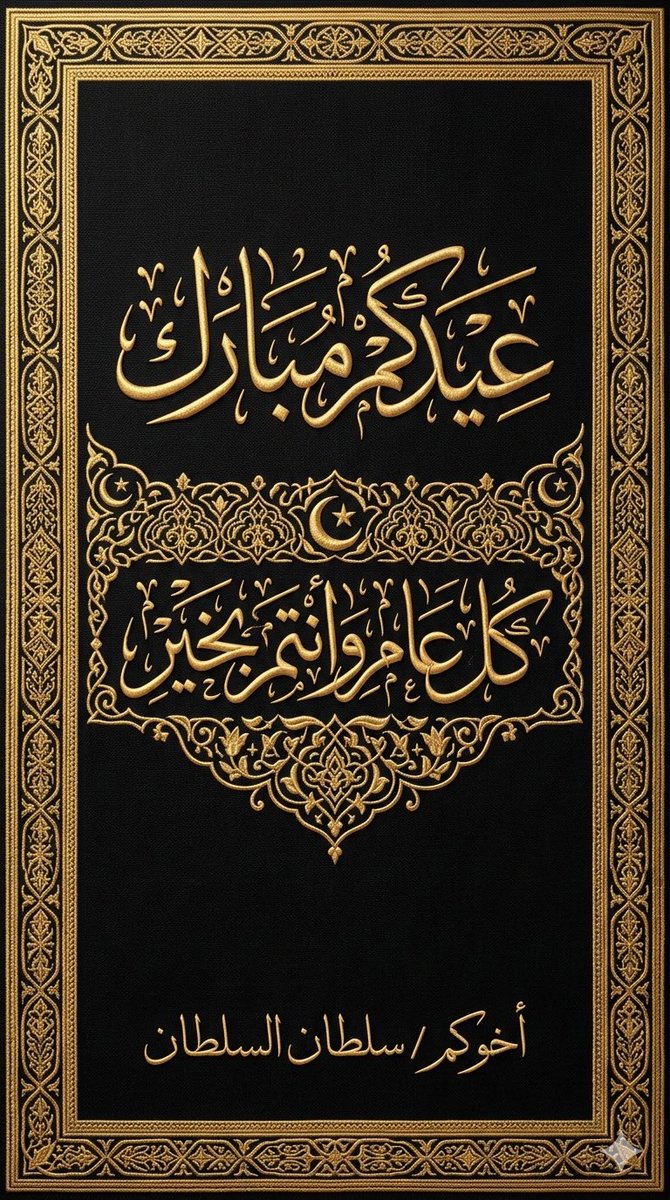 عِيدَكُم مُبَارَك
كُل عَام وَأنتم بخَيْرِ
أخوكم / سلطان السلطان